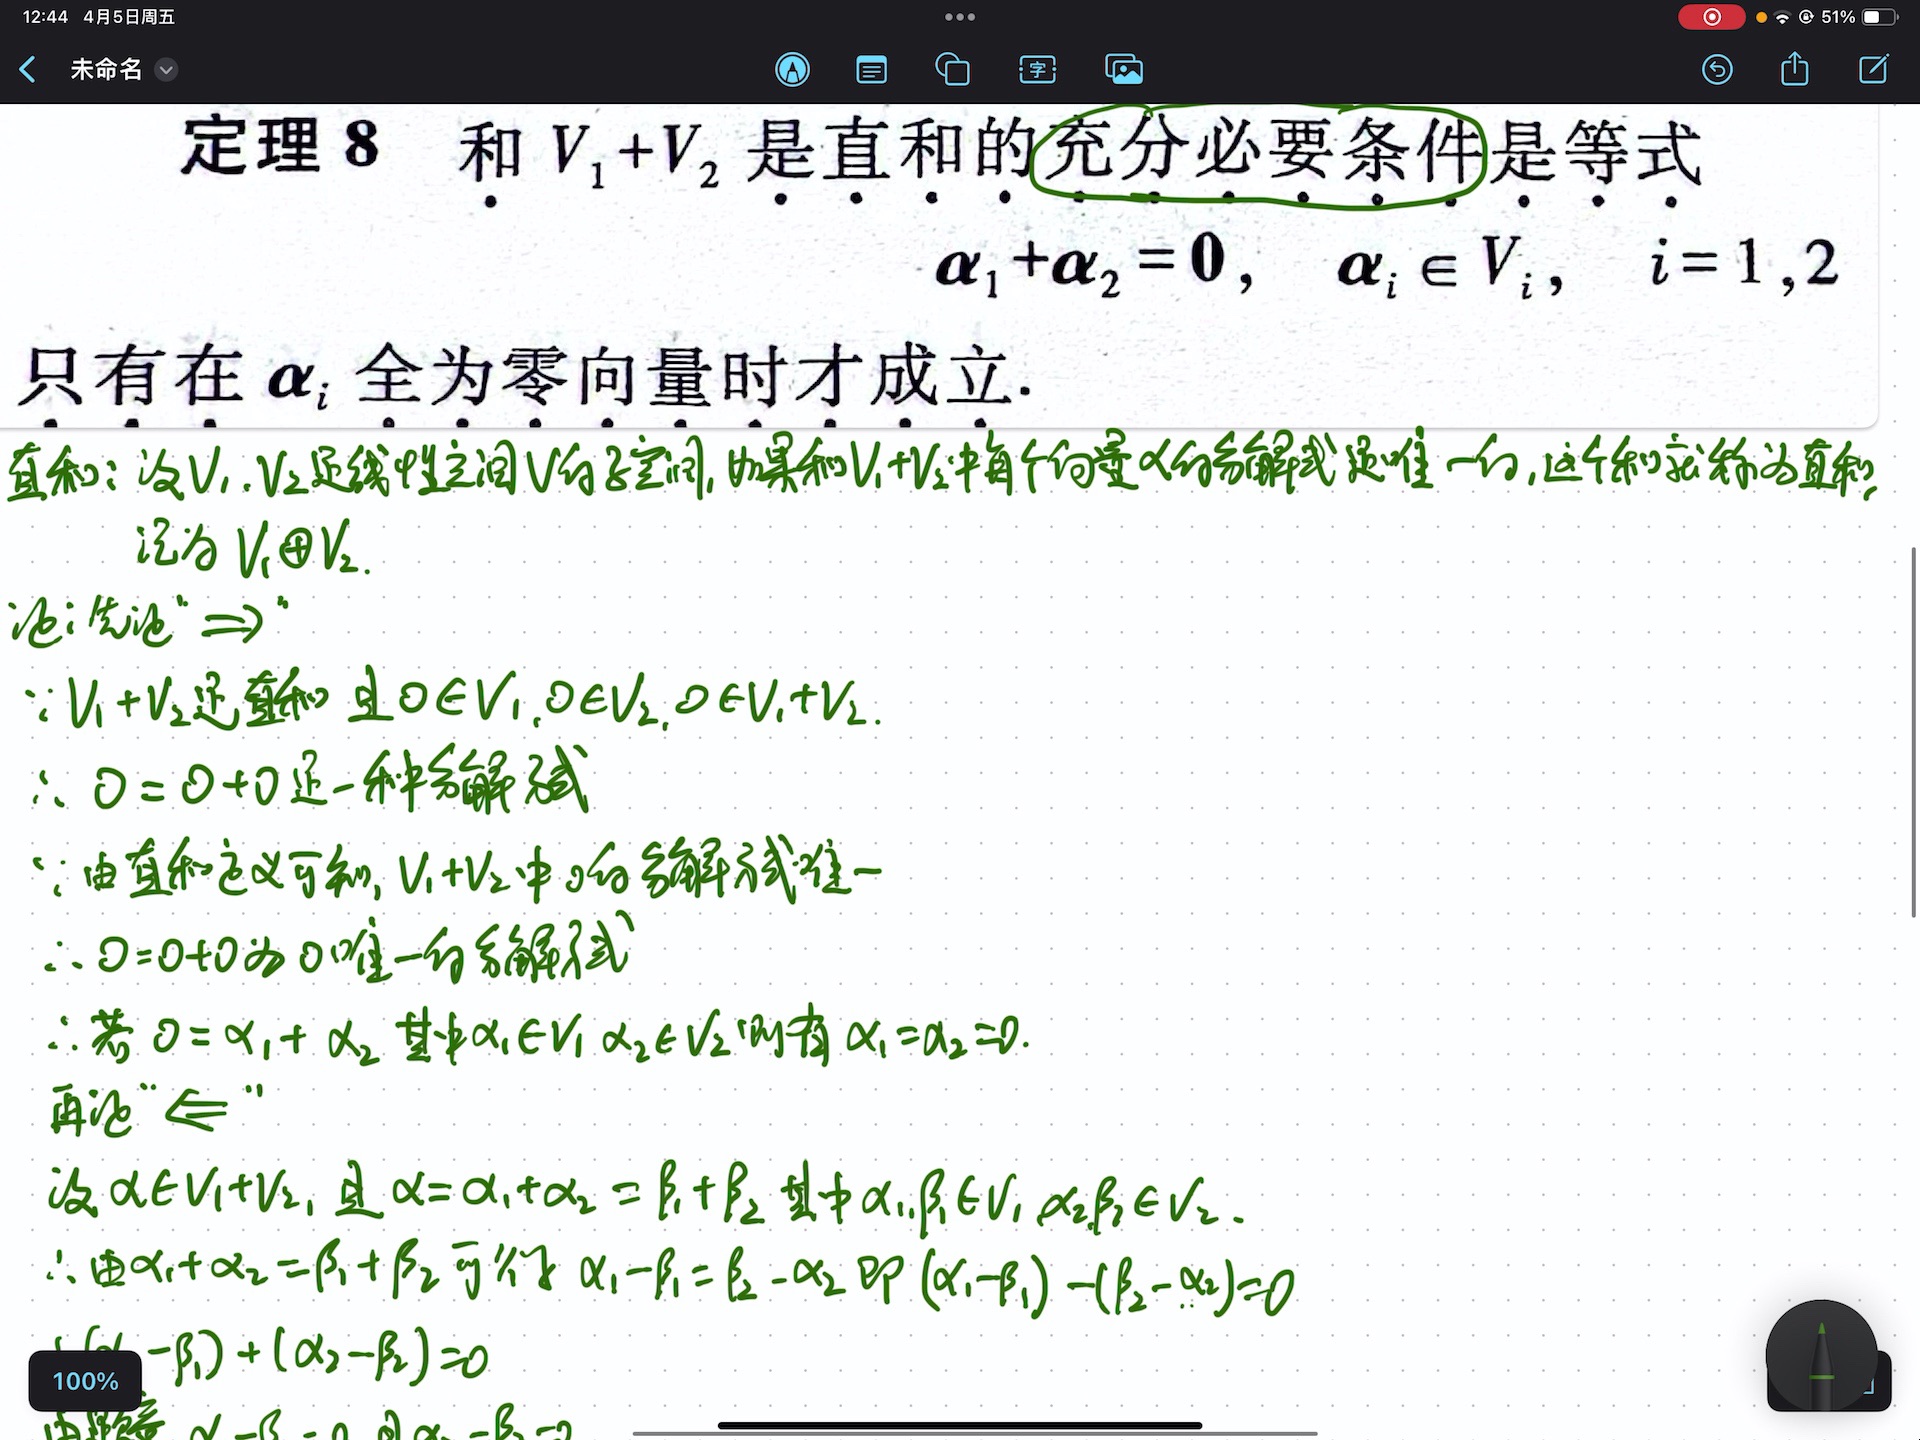 12:44 4月5日周五
51%
未命名
字
定理 8 和 V₁+V₂ 是直和的充分必要条件是等式
α₁+α₂=0, αᵢ∈Vᵢ, i=1,2
只有在 αᵢ 全为零向量时才成立.
直和:设V₁.V₂是线性空间V的子空间,如果和V₁+V₂中每个向量α的分解式是唯一的,这个和就称为直和,
记为 V₁⊕V₂.
证:先证"⇒"
∵V₁+V₂是直和 且0∈V₁,0∈V₂,0∈V₁+V₂.
∴ 0=0+0是一种分解式
∵由直和定义可知,V₁+V₂中0的分解式唯一
∴0=0+0为0唯一的分解式
∴若 0=α₁+α₂ 其中α₁∈V₁ α₂∈V₂ 则有 α₁=α₂=0.
再证"⇐"
设α∈V₁+V₂,且α=α₁+α₂=β₁+β₂ 其中α₁.β₁∈V₁,α₂β₂∈V₂.
∴由α₁+α₂=β₁+β₂可得 α₁-β₁=β₂-α₂即(α₁-β₁)-(β₂-α₂)=0
-β₁)+(α₂-β₂)=0
100%